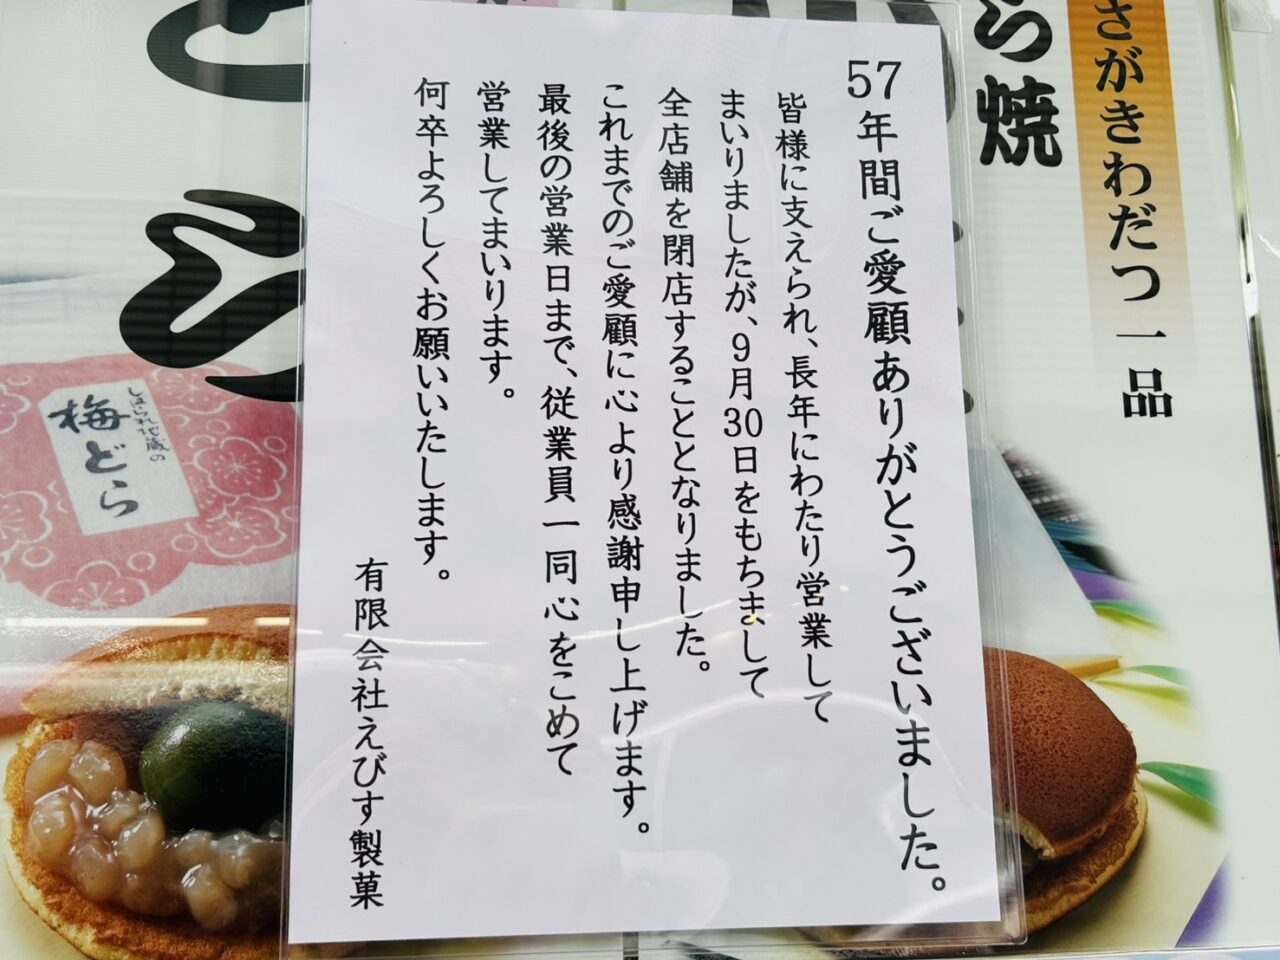 57年間ご愛顧ありがとうございました。
皆様に支えられ、長年にわたり営業して
まいりましたが、9月30日をもちまして
全店舗を閉店することとなりました。
これまでのご愛顧に心より感謝申し上げます。
最後の営業日まで、従業員一同心をこめて
営業してまいります。
何卒よろしくお願いいたします。
有限会社えびす製菓
さがきわだつ一品
ら焼
しばられ地蔵の
梅どら